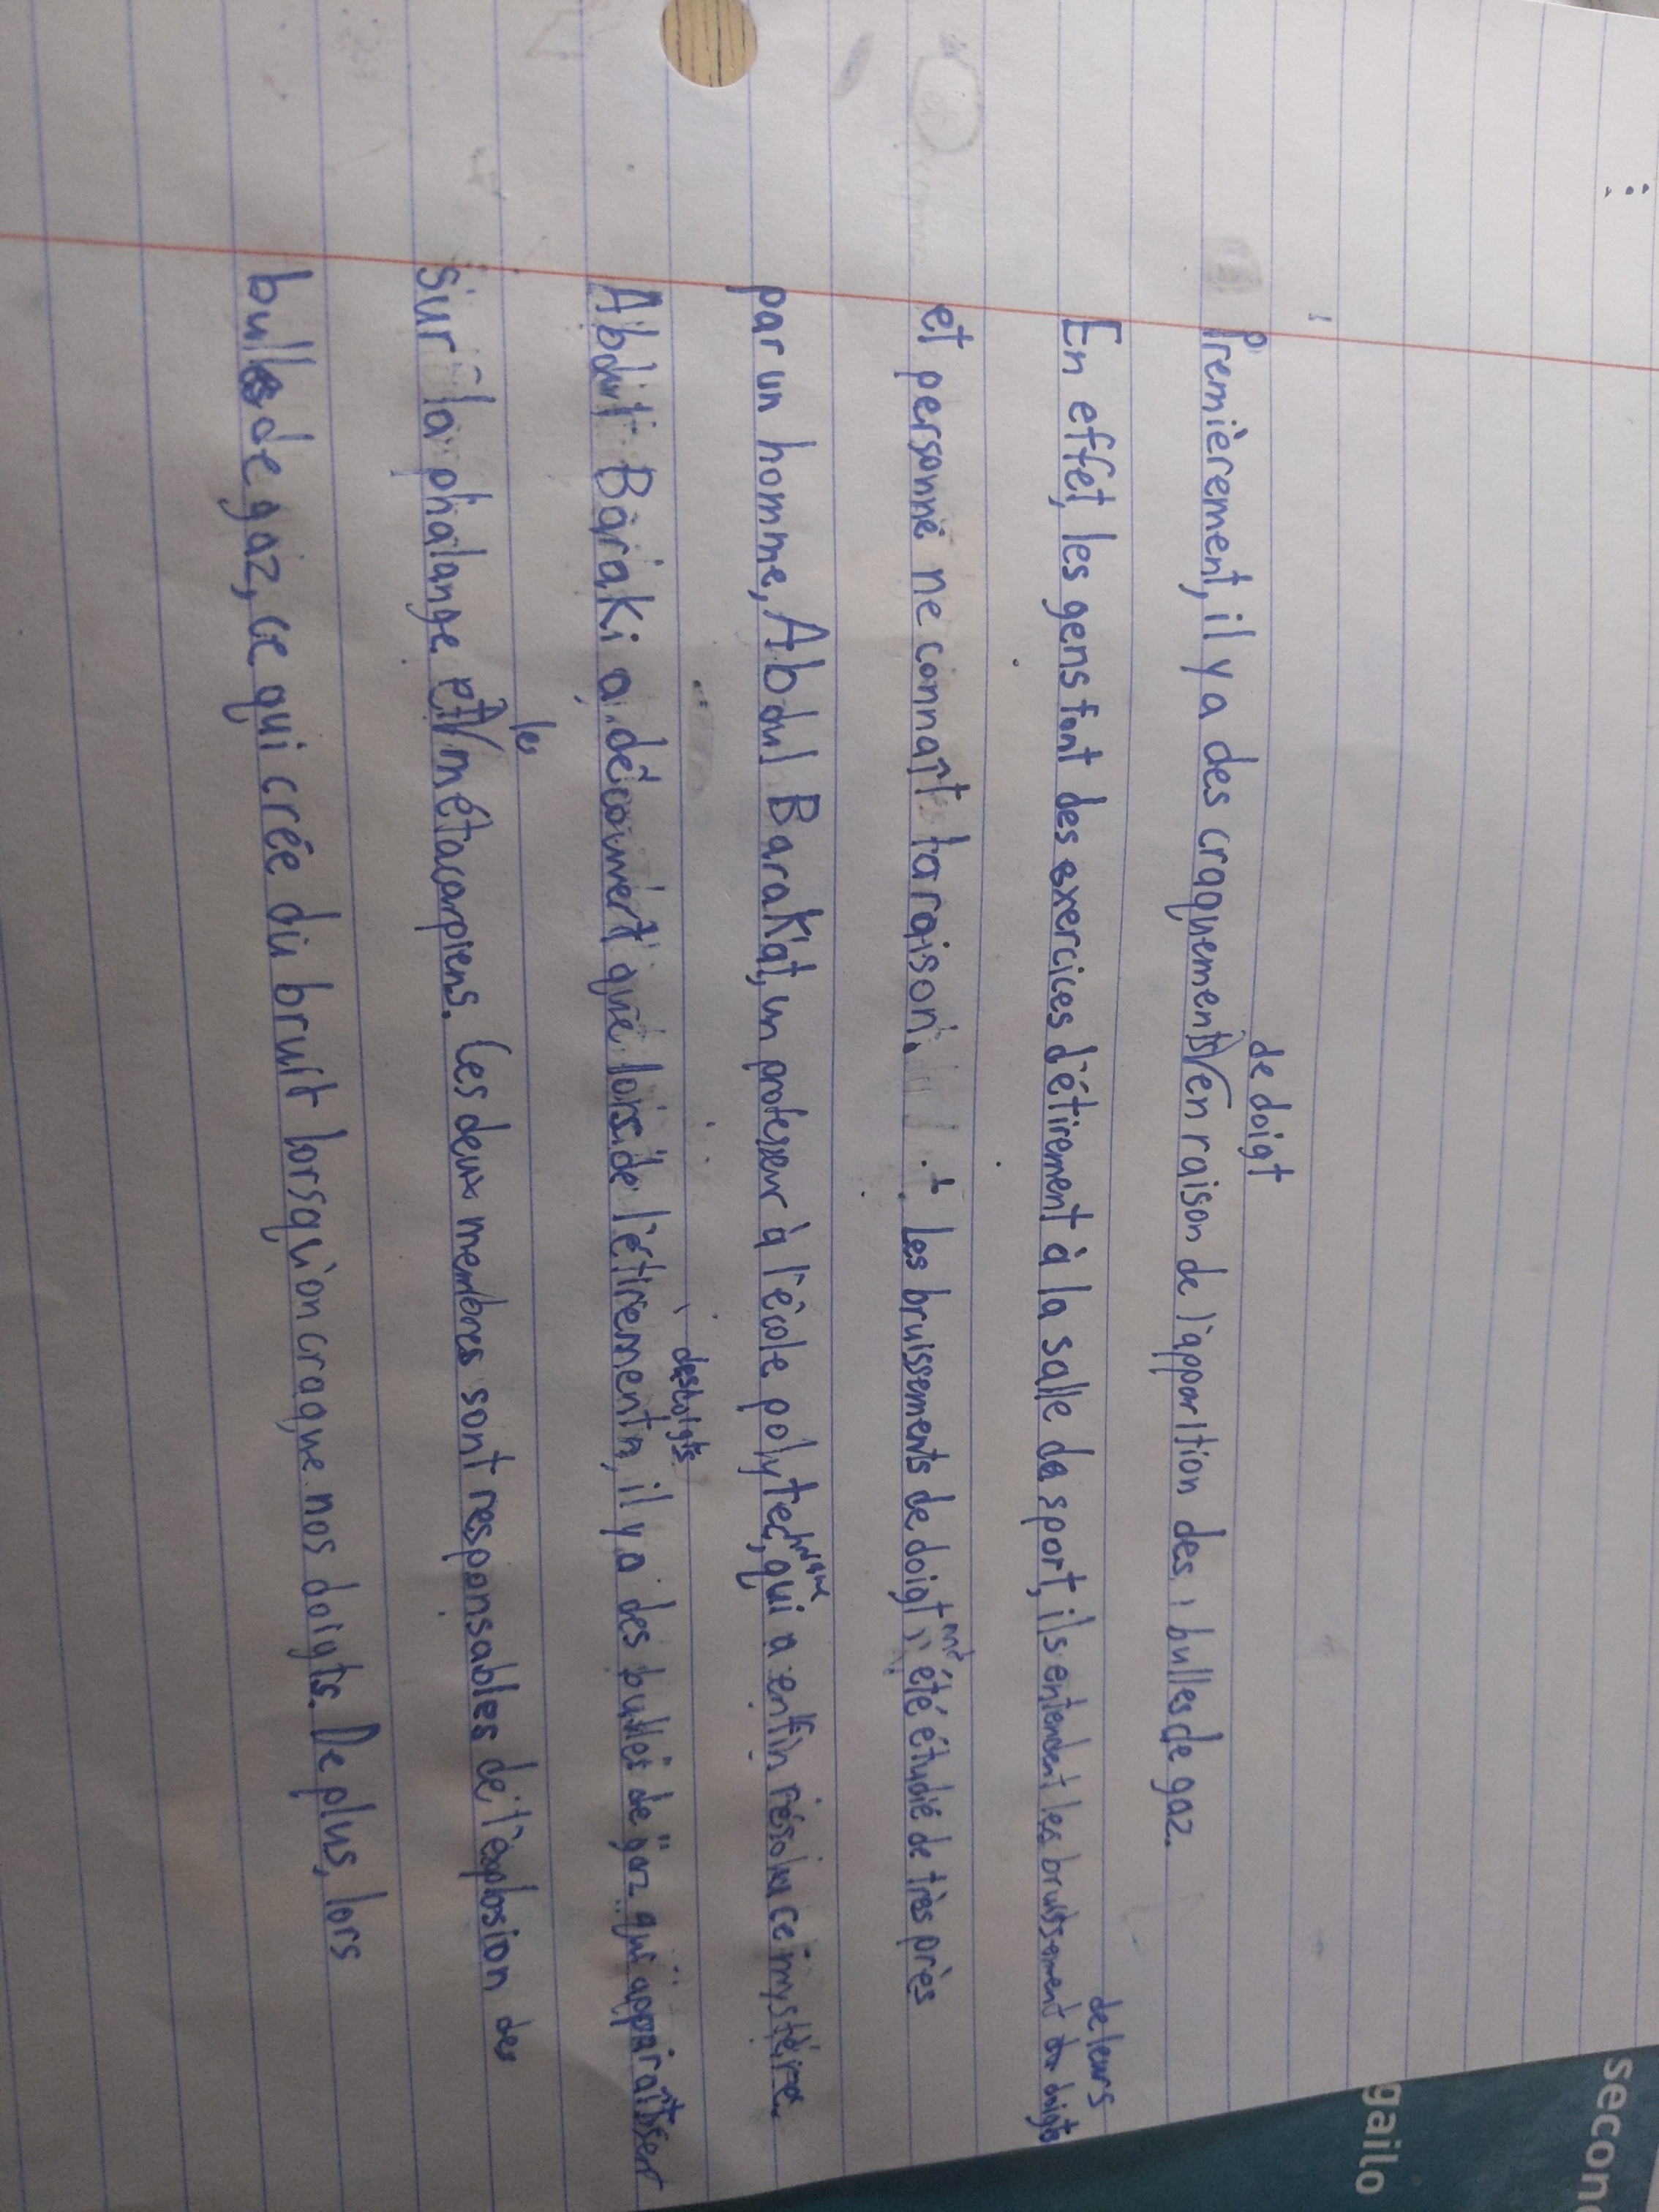 Premièrement, il y a des craquements de doigt en raison de l'apparition des bulles de gaz.
En effet, les gens font des exercices d'étirement à la salle de sport, ils entendent les bruissement de leurs doigts
et personne ne connaît la raison. Les bruissements de doigt ont été étudié de très près
par un homme, Abdul Barakat, un professeur à l'école polytechnique, qui a enfin résolu ce mystère.
Abdul Baraki a découvert que lors de l'étirement des doigts, il y a des bulles de gaz qui apparaîssent
sur la phalange et les métacarpiens. Les deux membres sont responsables de l'explosion des
bulles de gaz, ce qui crée du bruit lorsqu'on craque nos doigts. De plus, lors
secon
gailo